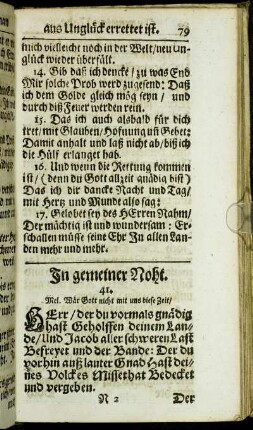 aus Unglück errettet ist. 79
mich vielleicht noch in der Welt/neu Un-
glück wieder überfält.
14. Gib daß ich dencke/ zu was End
Mir solche Prob werd zugesend: Daß
ich dem Golde gleich mög seyn/ und
durch diß Feuer werden rein.
15. Das ich auch alsbald für dich
tret/ mit Glauben/Hofnung uñ Gebet:
Damit anhalt und laß nicht ab/biß ich
die Hülf erlanget hab.
16. Und wenn die Rettung kommen
ist/ (denn du Gott allzeit gnädig bist)
Das ich dir dancke Nacht und Tag/
mit Hertz und Munde also sag:
17. Gelobet sey des HErren Nahm/
Der mächtig ist und wundersam: Er-
schallen müsse seine Ehr In allen Lan-
den mehr und mehr.
In gemeiner Noht.
41.
Mel. Wär Gott nicht mit uns diese Zeit/
HErr/ der du vormals gnädig
hast Geholffen deinem Lan-
de/Und Jacob aller schweren Last
Befreyet und der Bande: Der du
vorhin auß lauter Gnad Hast dei-
nes Volckes Missethat Bedecket
und vergeben.
N 2 Der